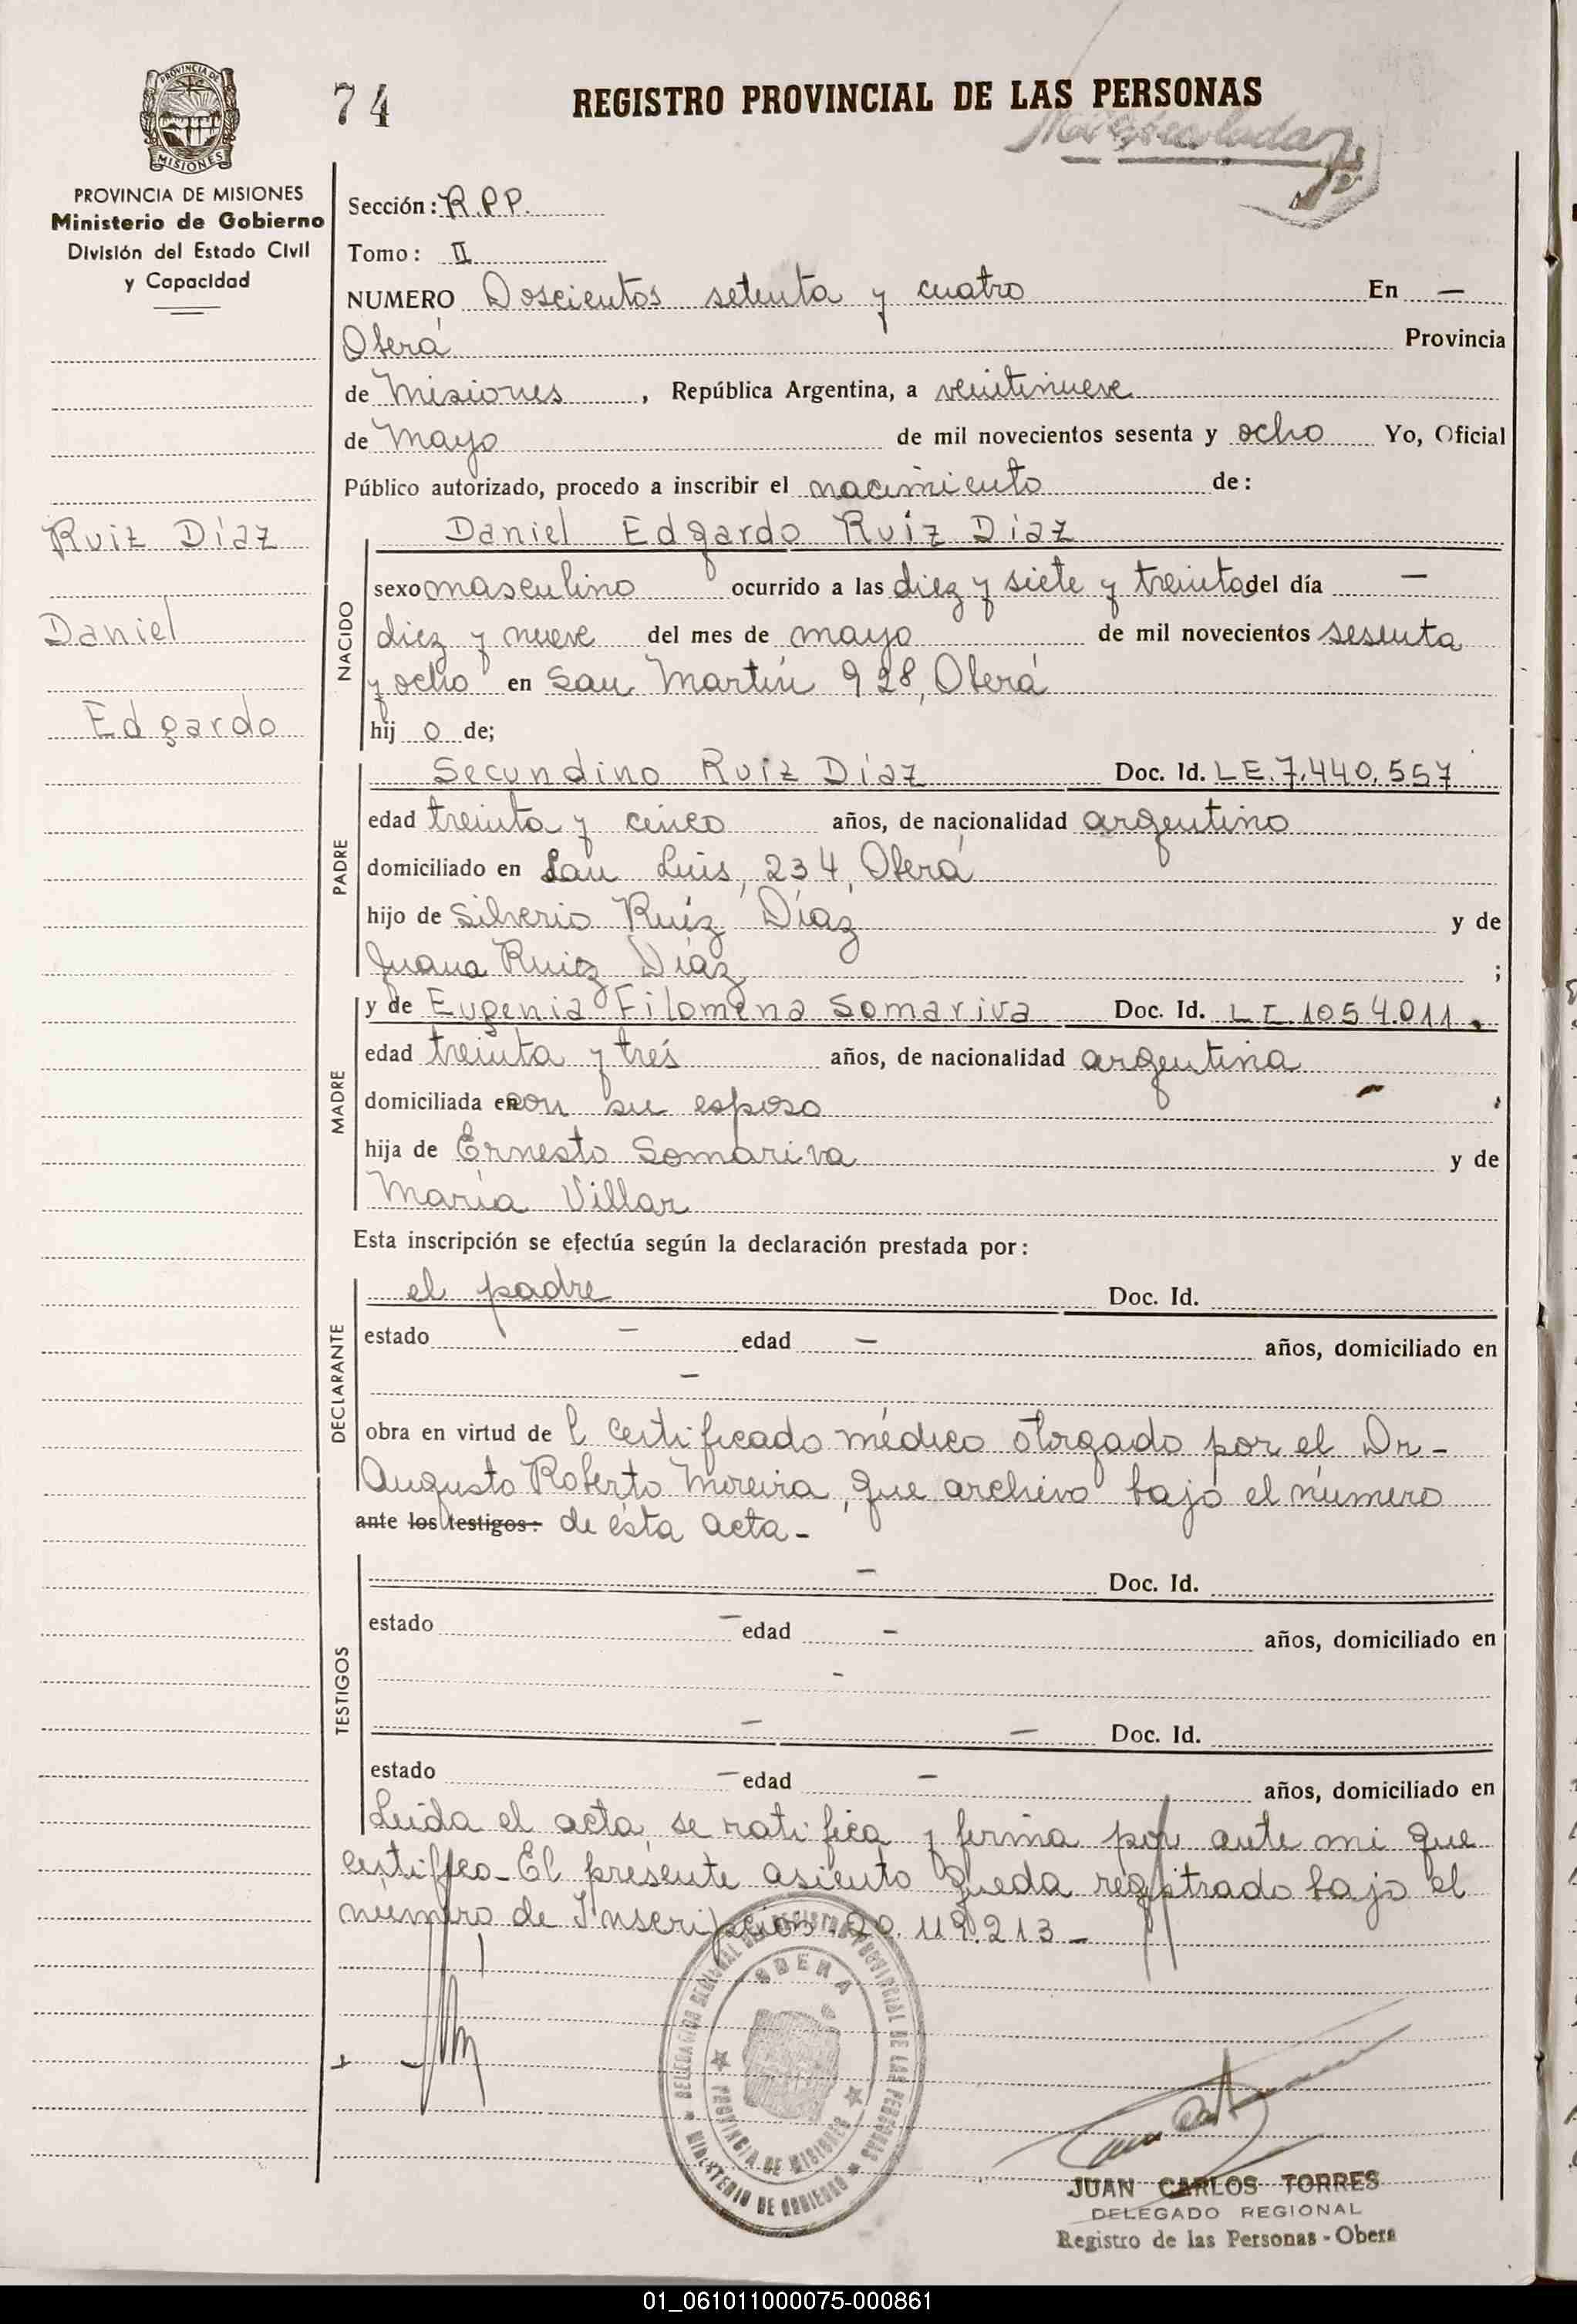 PROVINCIA DE
MISIONES
PROVINCIA DE MISIONES
Ministerio de Gobierno
División del Estado Civil
y Capacidad
74
REGISTRO PROVINCIAL DE LAS PERSONAS
Sección: R.P.P.
Tomo: II
NUMERO Doscientos setenta y cuatro En —
Oberá Provincia
de Misiones, República Argentina, a veintinueve
de Mayo de mil novecientos sesenta y ocho Yo, Oficial
Público autorizado, procedo a inscribir el nacimiento de:
Ruiz Díaz
Daniel
Edgardo
NACIDO
Daniel Edgardo Ruiz Díaz
sexo masculino ocurrido a las diez y siete y treinta del día —
diez y nueve del mes de mayo de mil novecientos sesenta
y ocho en San Martín 928, Oberá
hij o de;
PADRE
Secundino Ruiz Díaz Doc. Id. L E. 7.440.557
edad treinta y cinco años, de nacionalidad argentino
domiciliado en San Luis, 234, Oberá
hijo de Silverio Ruiz Díaz y de
Juana Ruiz Díaz ;
MADRE
y de Eugenia Filomena Somariva Doc. Id. L I. 1054.011.
edad treinta y trés años, de nacionalidad argentina
domiciliada en con su esposo
hija de Ernesto Somariva y de
María Villar
Esta inscripción se efectúa según la declaración prestada por:
DECLARANTE
el padre Doc. Id.
estado — edad — años, domiciliado en
—
obra en virtud de l certificado médico otorgado por el Dr-
Augusto Roberto Moreira, que archivo bajo el número
ante los testigos: de ésta acta-
TESTIGOS
— Doc. Id.
estado — edad — años, domiciliado en
-
— — Doc. Id.
estado — edad — años, domiciliado en
Leida el acta, se ratifica y firma por ante mi que
certifico- El presente asiento queda registrado bajo el
número de Inscripción 20.119.213-
DELEGACION REGIONAL DEL REGISTRO PROVINCIAL DE LAS PERSONAS
OBERA
PROVINCIA DE MISIONES
MINISTERIO DE GOBIERNO
JUAN CARLOS TORRES
DELEGADO REGIONAL
Registro de las Personas - Obera
01_061011000075-000861